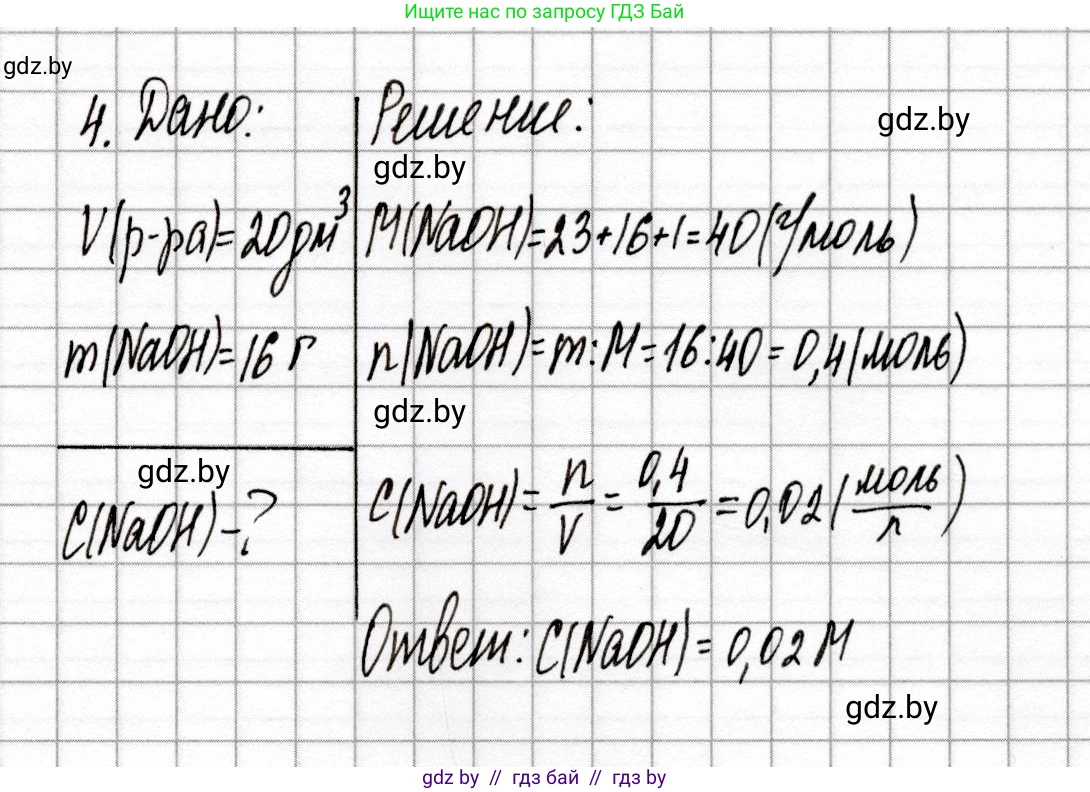 Ищите нас по запросу ГДЗ Бай
gdz.by
4. Дано:
Решение:
gdz.by
gdz.by
V(р-ра)=20дм³
M(NaOH)=23+16+1=40(г/моль)
m(NaOH)=16 г
n(NaOH)=m:M=16:40=0,4(моль)
gdz.by
gdz.by
C(NaOH)-?
C(NaOH)=n/V=0,4/20=0,02(моль/л)
Ответ: C(NaOH)=0,02M
gdz.by
gdz by // гдз бай // гдз by